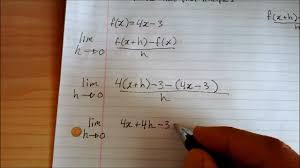 f(x) = 4x - 3
f(x+h)
lim h→0 f(x+h) - f(x) / h
lim h→0 4(x+h) - 3 - (4x - 3) / h
lim h→0 4x + 4h - 3